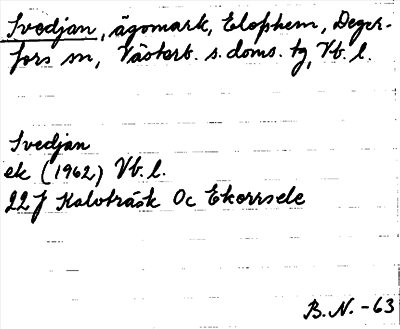 Svedjan, ägomark, Elofhem, Deger-
fors sn, Västerb. s. doms. tg, Vb. l.
Svedjan
ek (1962) Vb. l.
22J Kalvträsk Oc Ekorrsele
B.N. -63